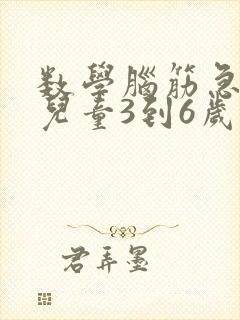 数學腦筋急
兒童3到6歲
君弄墨